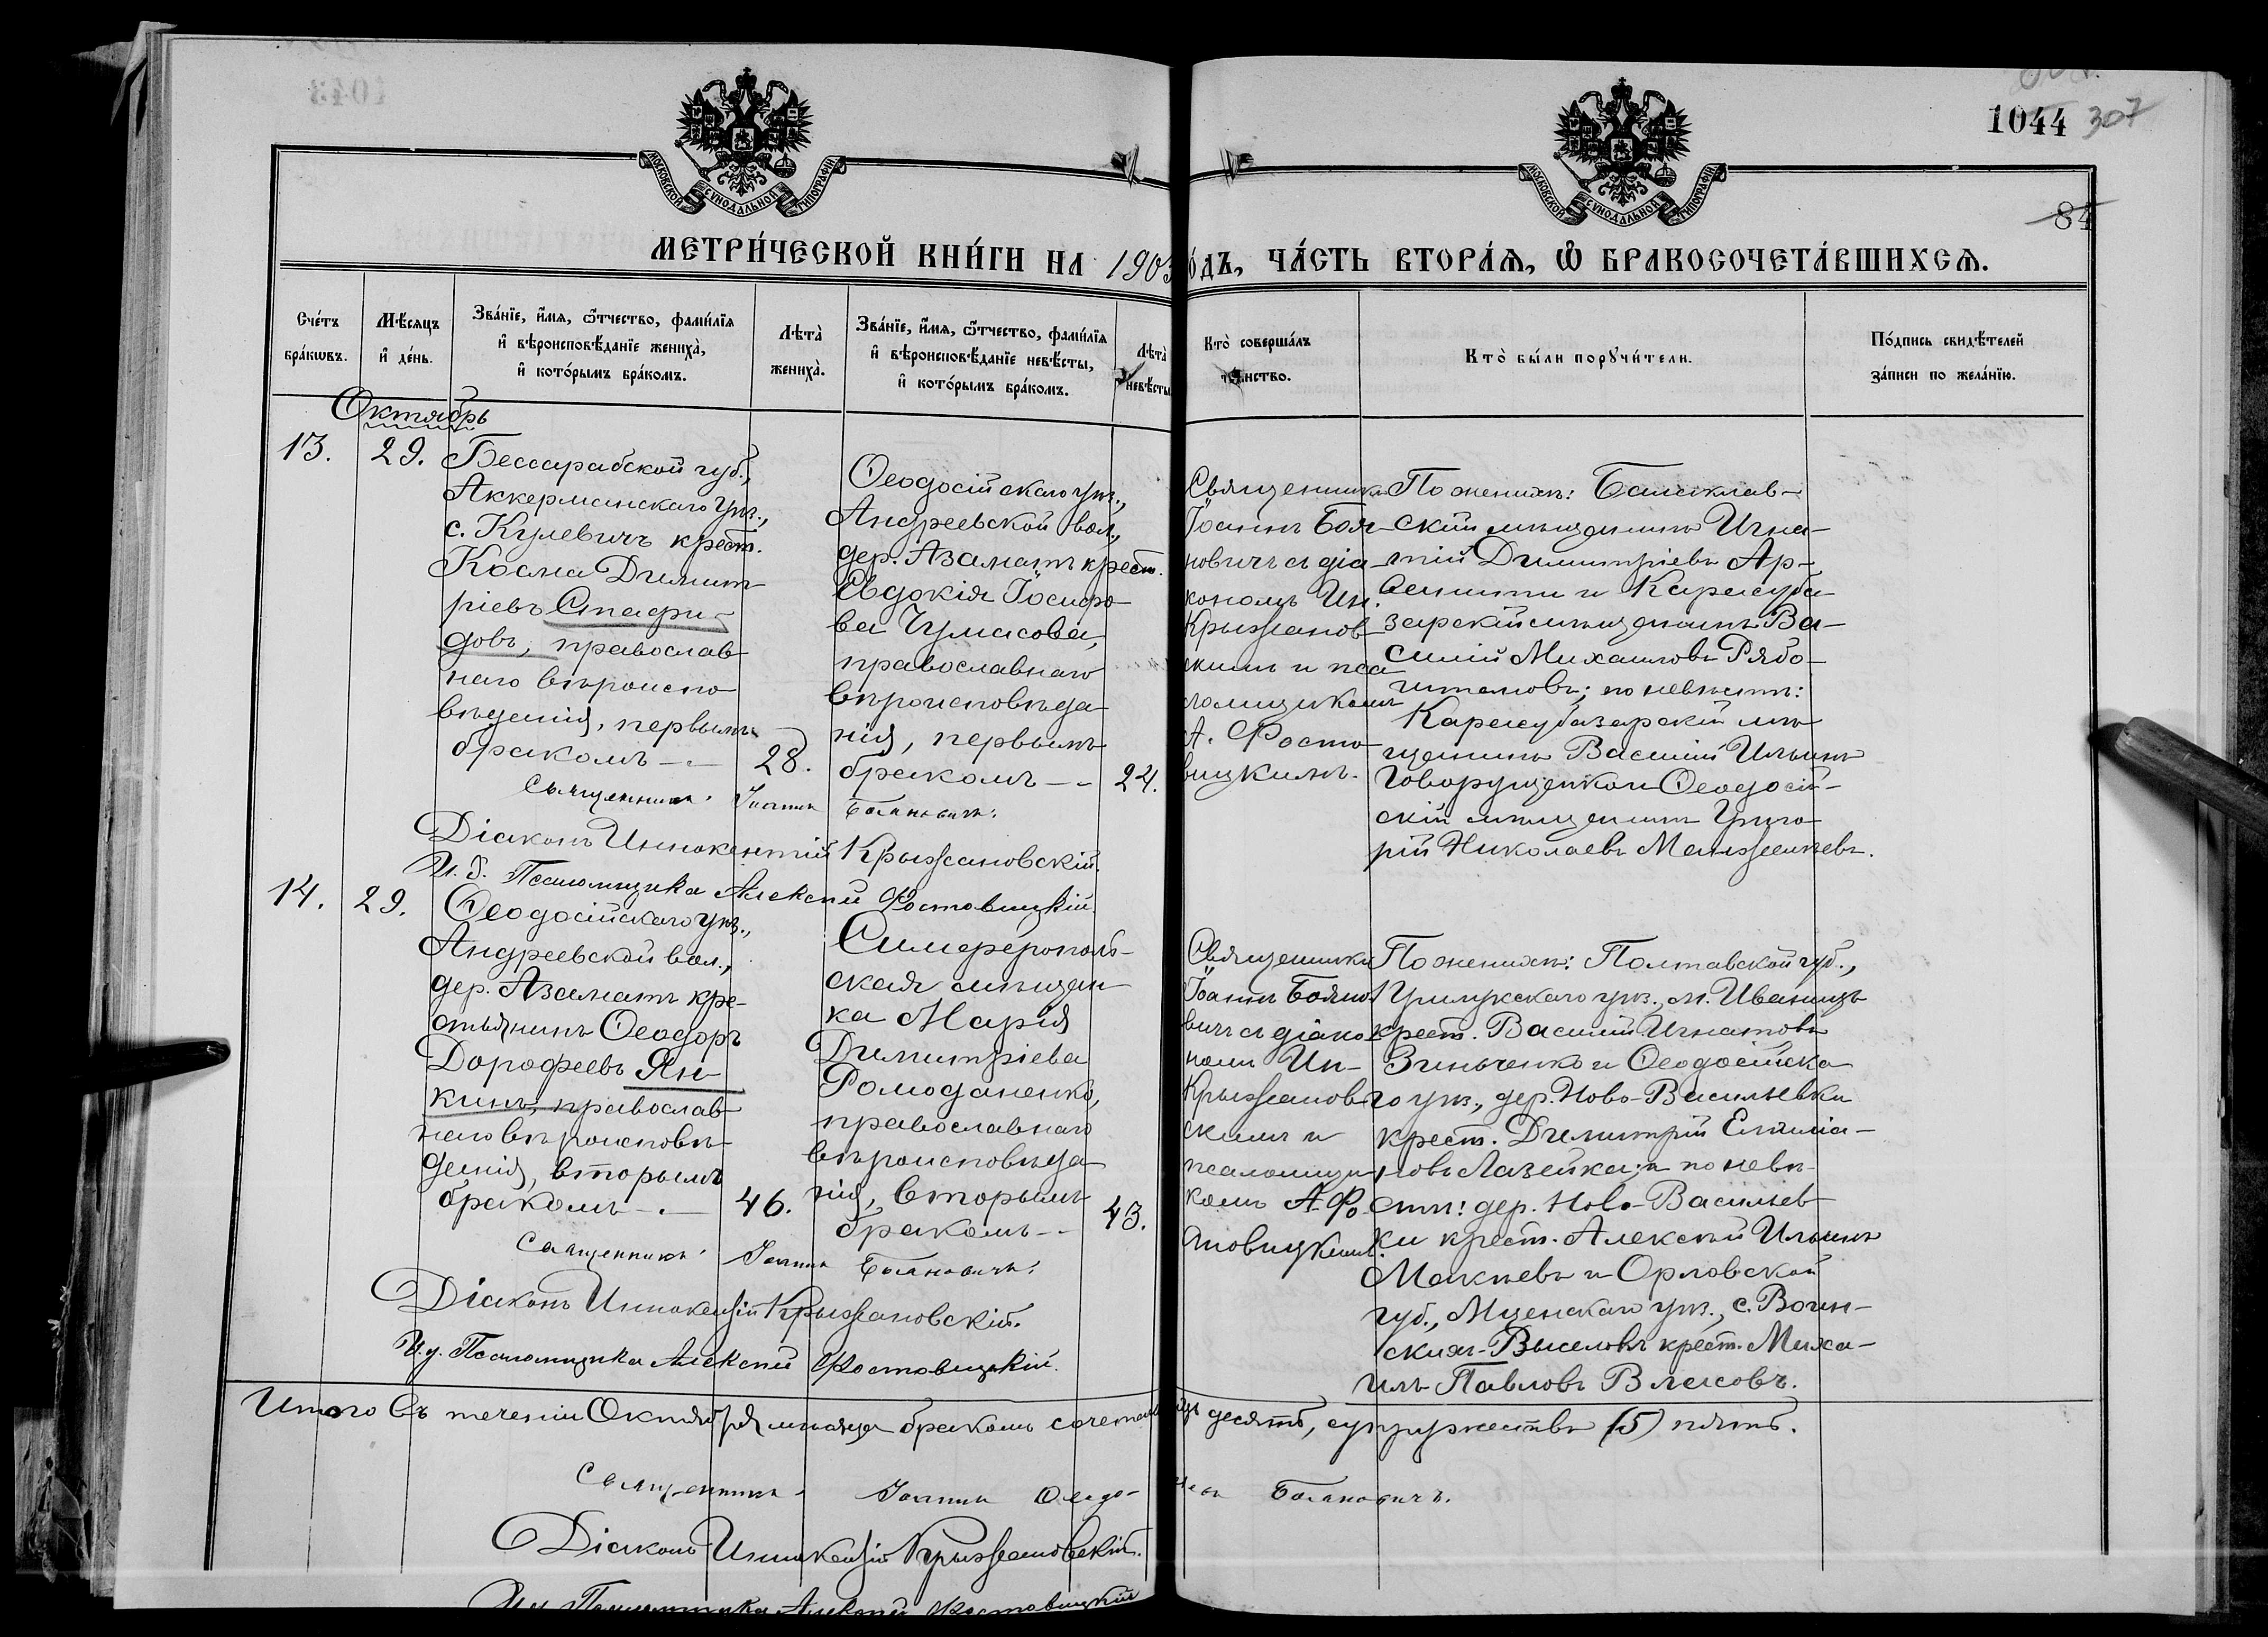 1044 307
84
МОСКОВСКОЙ СѴНОДАЛЬНОЙ ТИПОГРАФІИ
МОСКОВСКОЙ СѴНОДАЛЬНОЙ ТИПОГРАФІИ
МЕТРИ́ЧЕСКОЙ КНИ́ГИ НА 1903
О́ДЪ, ЧА́СТЬ ВТОРА́Ѧ, Ѽ БРАКОСОЧЕТА́ВШИХСѦ.
Сче́тъ бра́кѡвъ.
Мѣ́сяцъ и҆ де́нь.
Зва́нїе, и҆́мя, ѻ҆́тчество, фами́лїя
и҆ вѣроисповѣ́данїе жениха̀,
и҆ кото́рымъ бра́комъ.
Лѣта̀ жениха̀.
Зва́нїе, и҆́мя, ѻ҆́тчество, фами́лїя
и҆ вѣроисповѣ́данїе невѣ́сты,
и҆ кото́рымъ бра́комъ.
Лѣта̀ невѣ́сты
Кто̀ соверша́лъ
таинство.
Кто̀ бы́ли порꙋчи́тели.
По́дпись свидѣ́телей
за́писи по жела́нїю.
Октябрь
13.
29.
Бессарабской губ.,
Аккерманскаго уѣз.,
с. Кулевичъ крест.
Косма Димит-
ріевъ Спафи-
довъ, православ-
наго вѣроиспо-
вѣданія, первымъ
бракомъ —
28.
Ѳеодосійскаго уѣз.,
Андреевской вол.,
дер. Азаматъ крест.
Евдокія Іосифо-
ва Чумасова,
православнаго
вѣроисповѣда-
нія, первымъ
бракомъ —
24.
Священникъ
Іоаннъ Боя-
новичъ съ діа-
кономъ Ин.
Крыжанов-
скимъ и пса-
ломщикомъ
А. Фосто-
вицкимъ.
По женихѣ: Балаклав-
скій мѣщанинъ Игна-
тій Димитріевъ Ар-
и Карасуба-
зарскій мѣщанинъ Ва-
силій Михаиловъ Рябо-
шаповъ; по невѣстѣ:
Карасубазарскій мѣ-
щанинъ Василій Ильинъ
и Ѳеодосій-
скій мѣщанинъ Григо-
рій Николаевъ
Священникъ Іоаннъ Бояновичъ.
Діаконъ Иннокентій Крыжановскій.
И. д. Псаломщика Алексѣй Фостовицкій.
14.
29.
Ѳеодосійскаго уѣз.,
Андреевской вол.,
дер. Азаматъ кре-
стьянинъ Ѳеодоръ
Дорофеевъ Ян-
кинъ, православ-
наго вѣроисповѣ-
данія, вторымъ
бракомъ —
46.
Симферополь-
ская мѣщан-
ка Марія
Димитріева
Ромоданенко,
православнаго
вѣроисповѣда-
нія, вторымъ
бракомъ —
43.
Священникъ
Іоаннъ Бояно-
вичъ съ діако-
номъ Ин-
Крыжанов-
скимъ и
псаломщи-
комъ А. Фо-
стовицкимъ.
По женихѣ: Полтавской губ.,
Прилукскаго уѣз., м. Иваницъ
крест. Василій Игнатовъ
Зинченко и Ѳеодосійска-
го уѣз., дер. Ново-Васильевки
крест. Димитрій Емиліа-
новъ Лазейка; и по невѣ-
стѣ: дер. Ново-Васильев-
ки крест. Алексѣй Ильинъ
Макѣевъ и Орловской
губ., Мценскаго уѣз., с. Воин-
скихъ-Выселовъ крест. Миха-
илъ Павловъ Власовъ.
Священникъ Іоаннъ Бояновичъ.
Діаконъ Иннокентій Крыжановскій.
И. д. Псаломщика Алексѣй Фостовицкій.
Итого въ теченіи Октября мѣсяца бракомъ десять, супружествъ (5) пять.
Священникъ Іоаннъ Бояновичъ.
Діаконъ Иннокентій Крыжановскій.
И.д. Псаломщика Алексѣй Фостовицкій